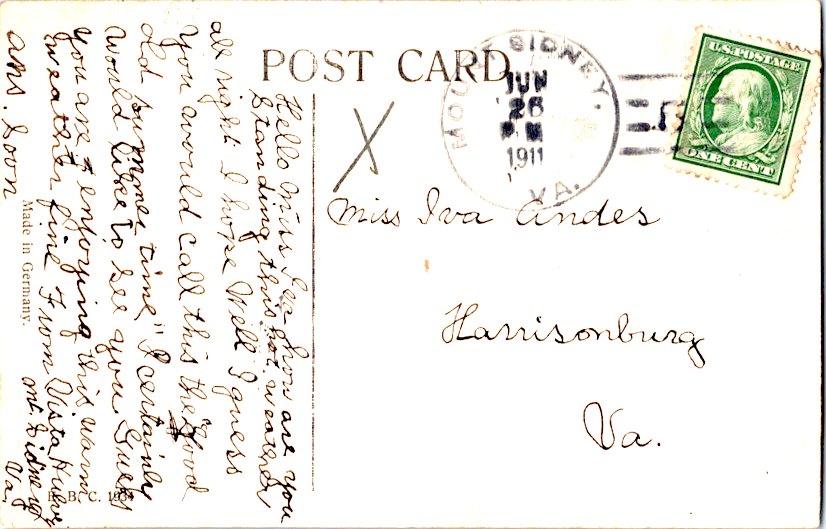 POST CARD
MOUNT SIDNEY.
JUN
26
P M
1911
VA.
U.S. POSTAGE
ONE CENT
Miss Iva Andes
Harrisonburg
Va.
Hello Miss Iva how are you
Standing this hot weather
all right I hope Well I guess
you would call this the "Good
old summer time" I certainly
would like to see you Guess
you are enjoying this warm
weather fine From Vista
Mt. Sidney
Va.
ans. Soon
Made in Germany.
B. C.